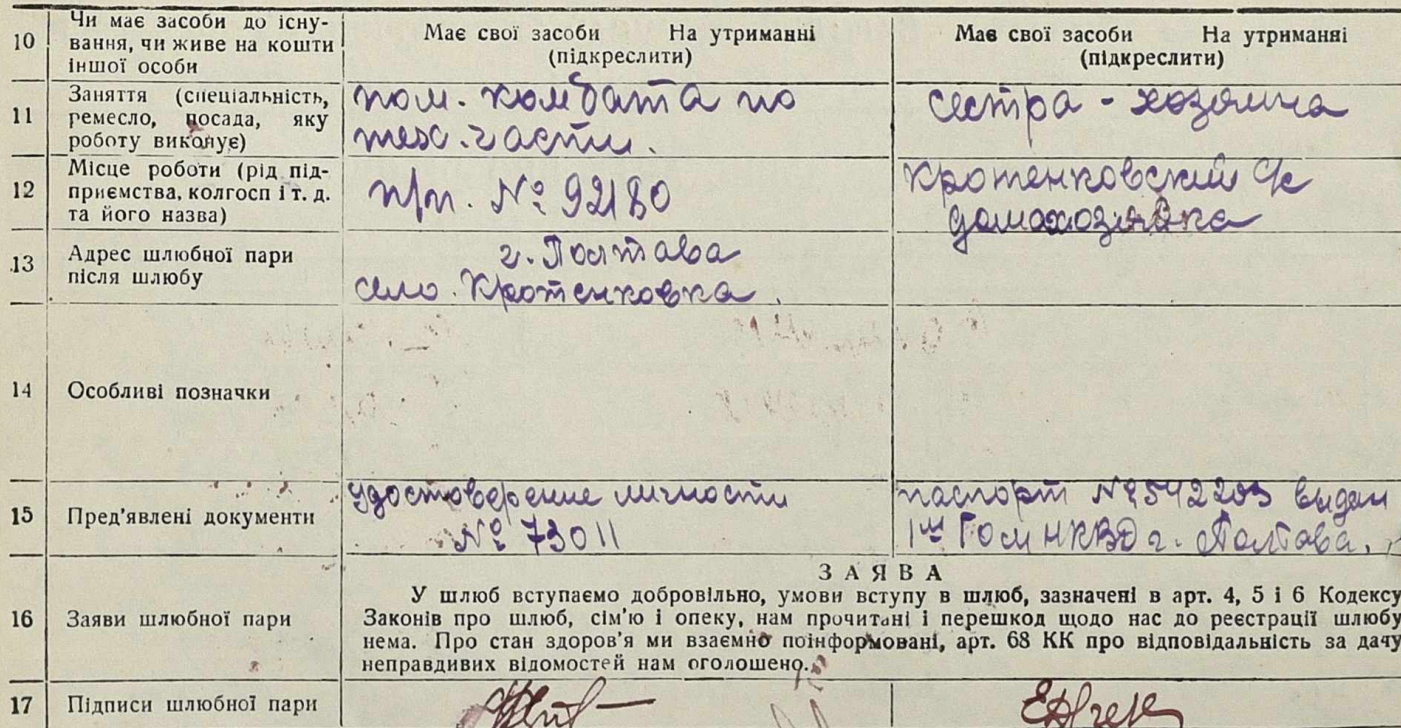 10 Чи має засоби до існу-
вання, чи живе на кошти
іншої особи
Має свої засоби На утриманні
(підкреслити)
Має свої засоби На утриманні
(підкреслити)
11 Заняття (спеціальність,
ремесло, посада, яку
роботу виконує)
пом. комбата по
тех. части.
сестра - хозяйка
12 Місце роботи (рід під-
приємства, колгосп і т. д.
та його назва)
п/п. № 92180
Кротенковский
домохозяйка
13 Адрес шлюбної пари
після шлюбу
г. Полтава
село. Кротенковка.
14 Особливі позначки
15 Пред'явлені документи
удостоверение личности
№ 73011
паспорт № 542203 выдан
1м Гом НКВД г. Полтава.
16 Заяви шлюбної пари
ЗАЯВА
У шлюб вступаємо добровільно, умови вступу в шлюб, зазначені в арт. 4, 5 і 6 Кодексу
Законів про шлюб, сім'ю і опеку, нам прочитані і перешкод щодо нас до реєстрації шлюбу
нема. Про стан здоров'я ми взаємно поінформовані, арт. 68 КК про відповідальність за дачу
неправдивих відомостей нам оголошено.
17 Підписи шлюбної пари